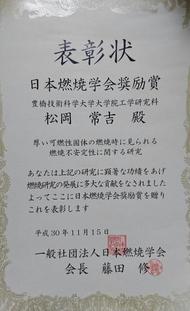 表彰状
日本燃焼学会奨励賞
豊橋技術科学大学大学院工学研究科
松岡 常吉 殿
厚い可燃性固体の燃焼時に見られる
燃焼不安定性に関する研究
あなたは上記の研究に顕著な功績をあげ
燃焼研究の発展に多大な貢献をなされました
よってここに日本燃焼学会奨励賞を贈り
これを表彰します
平成30年11月15日
一般社団法人日本燃焼学会
会長 藤田 修